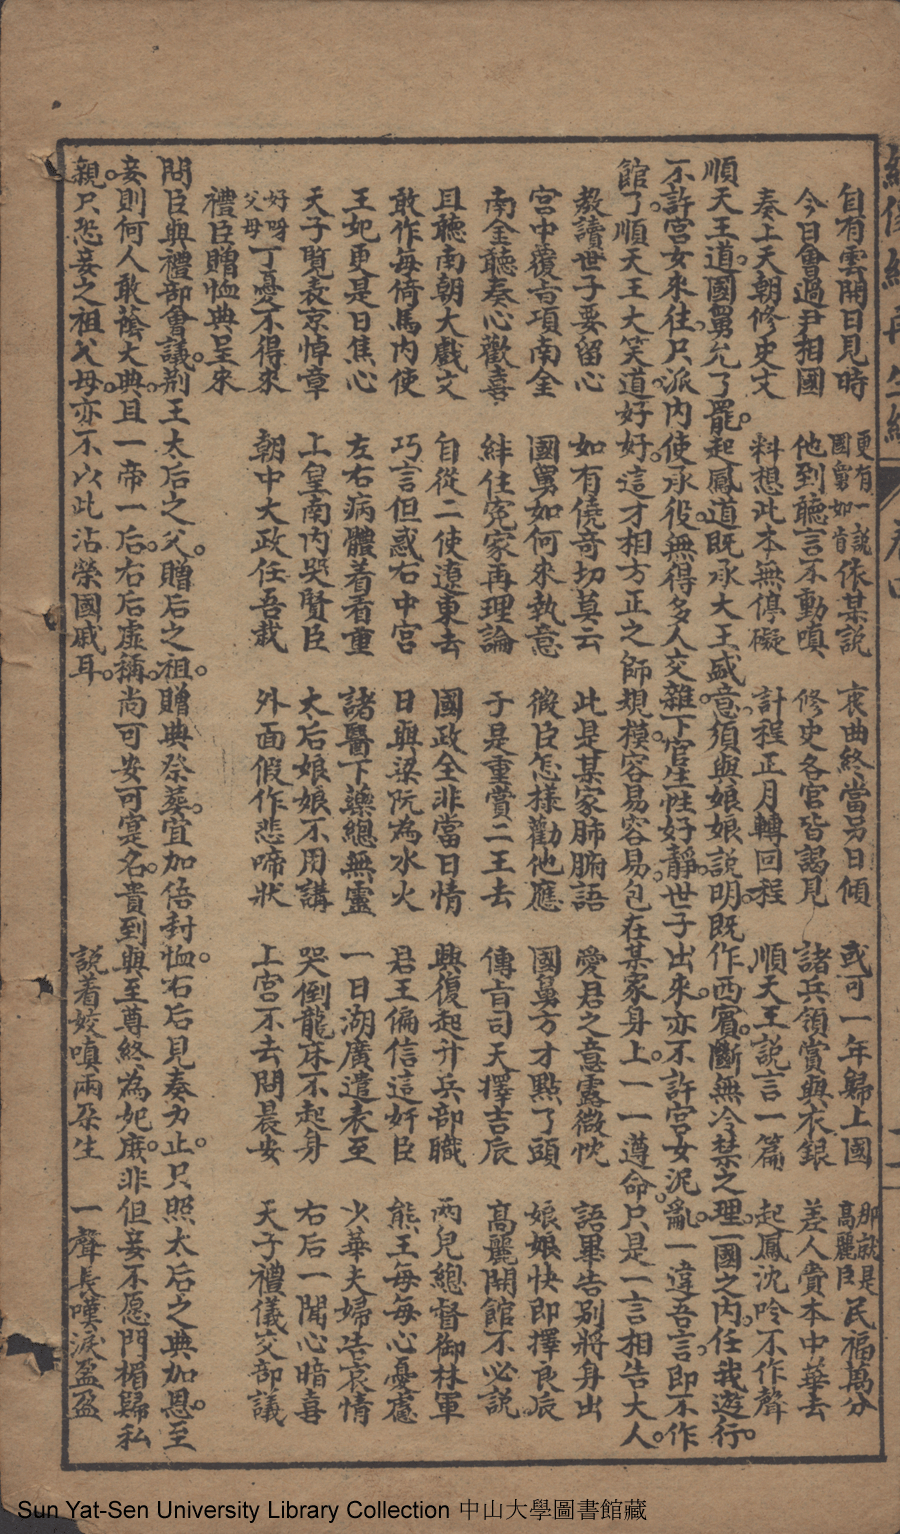 自有雲開日見時 更有一說國舅如肯依某說 衷曲終當另日傾 或可一年歸上國 那就是高麗臣民福萬分
今日會過尹相國 他到聽言不動嗔 修史各官皆謁見 諸兵領賞與衣銀 差人賫本中華去
奏上天朝修史文 料想此本無停礙 計程正月轉回程 順天王說言一篇 起鳳沈吟不作聲
順天王道。國舅允了罷。起鳳道既承大王盛意。須與娘娘說明。既作西賓。斷無冷禁之理。一國之內。任我遊行。
不許宮女來往。只派內使承役。無得多人交雜。下官生性好靜。世子出來。亦不許宮女泥亂。一違吾言。即不作
館了。順天王大笑道好好。這才相方正之師規模。容易容易。包在某家身上。一一遵命。只是一言相告大人。
教讀世子要留心 如有僥奇切莫云 此是某家肺腑語 愛君之意露微忱 語畢告別將身出
宮中覆旨項南金 國舅如何來執意 微臣怎樣勸他應 國舅方才點了頭 娘娘快即擇良辰
南金聽奏心歡喜 絆住冤家再理論 于是重賞二王去 傳旨司天擇吉辰 高麗開館不必說
且聽南朝大戲文 自從二使遼東去 國政全非當日情 興復起升兵部職 两兒總督御林軍
敢作每倚馬內使 巧言但惑右中宮 日與梁阮為水火 君王偏信這奸臣 熊王每每心憂慮
王妃更是日焦心 左右病體着看重 諸醫下藥總無靈 一日湖廣遣表至 少華夫婦告哀情
天子覽表京悼章 上皇南內哭賢臣 太后娘娘不用講 哭倒龍床不起身 右后一聞心暗喜
好呀父母丁憂不得來 朝中大政任吾裁 外面假作悲啼狀 上宮不去問晨安 天子禮儀交部議
禮臣贈恤典呈來
問臣與禮部會議。荆王太后之父。贈后之祖。贈典祭葬。宜加倍封恤。右后見奏力止。只照太后之典加恩。至
妾則何人敢蔭大典。且一帝一后。右后虛稱。尚可安可寔名。貴到與至尊終為妃。庶非但妾不愿門楣歸私
親。只恐妾之祖父母。亦不以此沾榮國戚耳。 說着姣嗔兩朶生 一聲長嘆淚盈盈
卷四
Sun Yat-Sen University Library Collection 中山大學圖書館藏